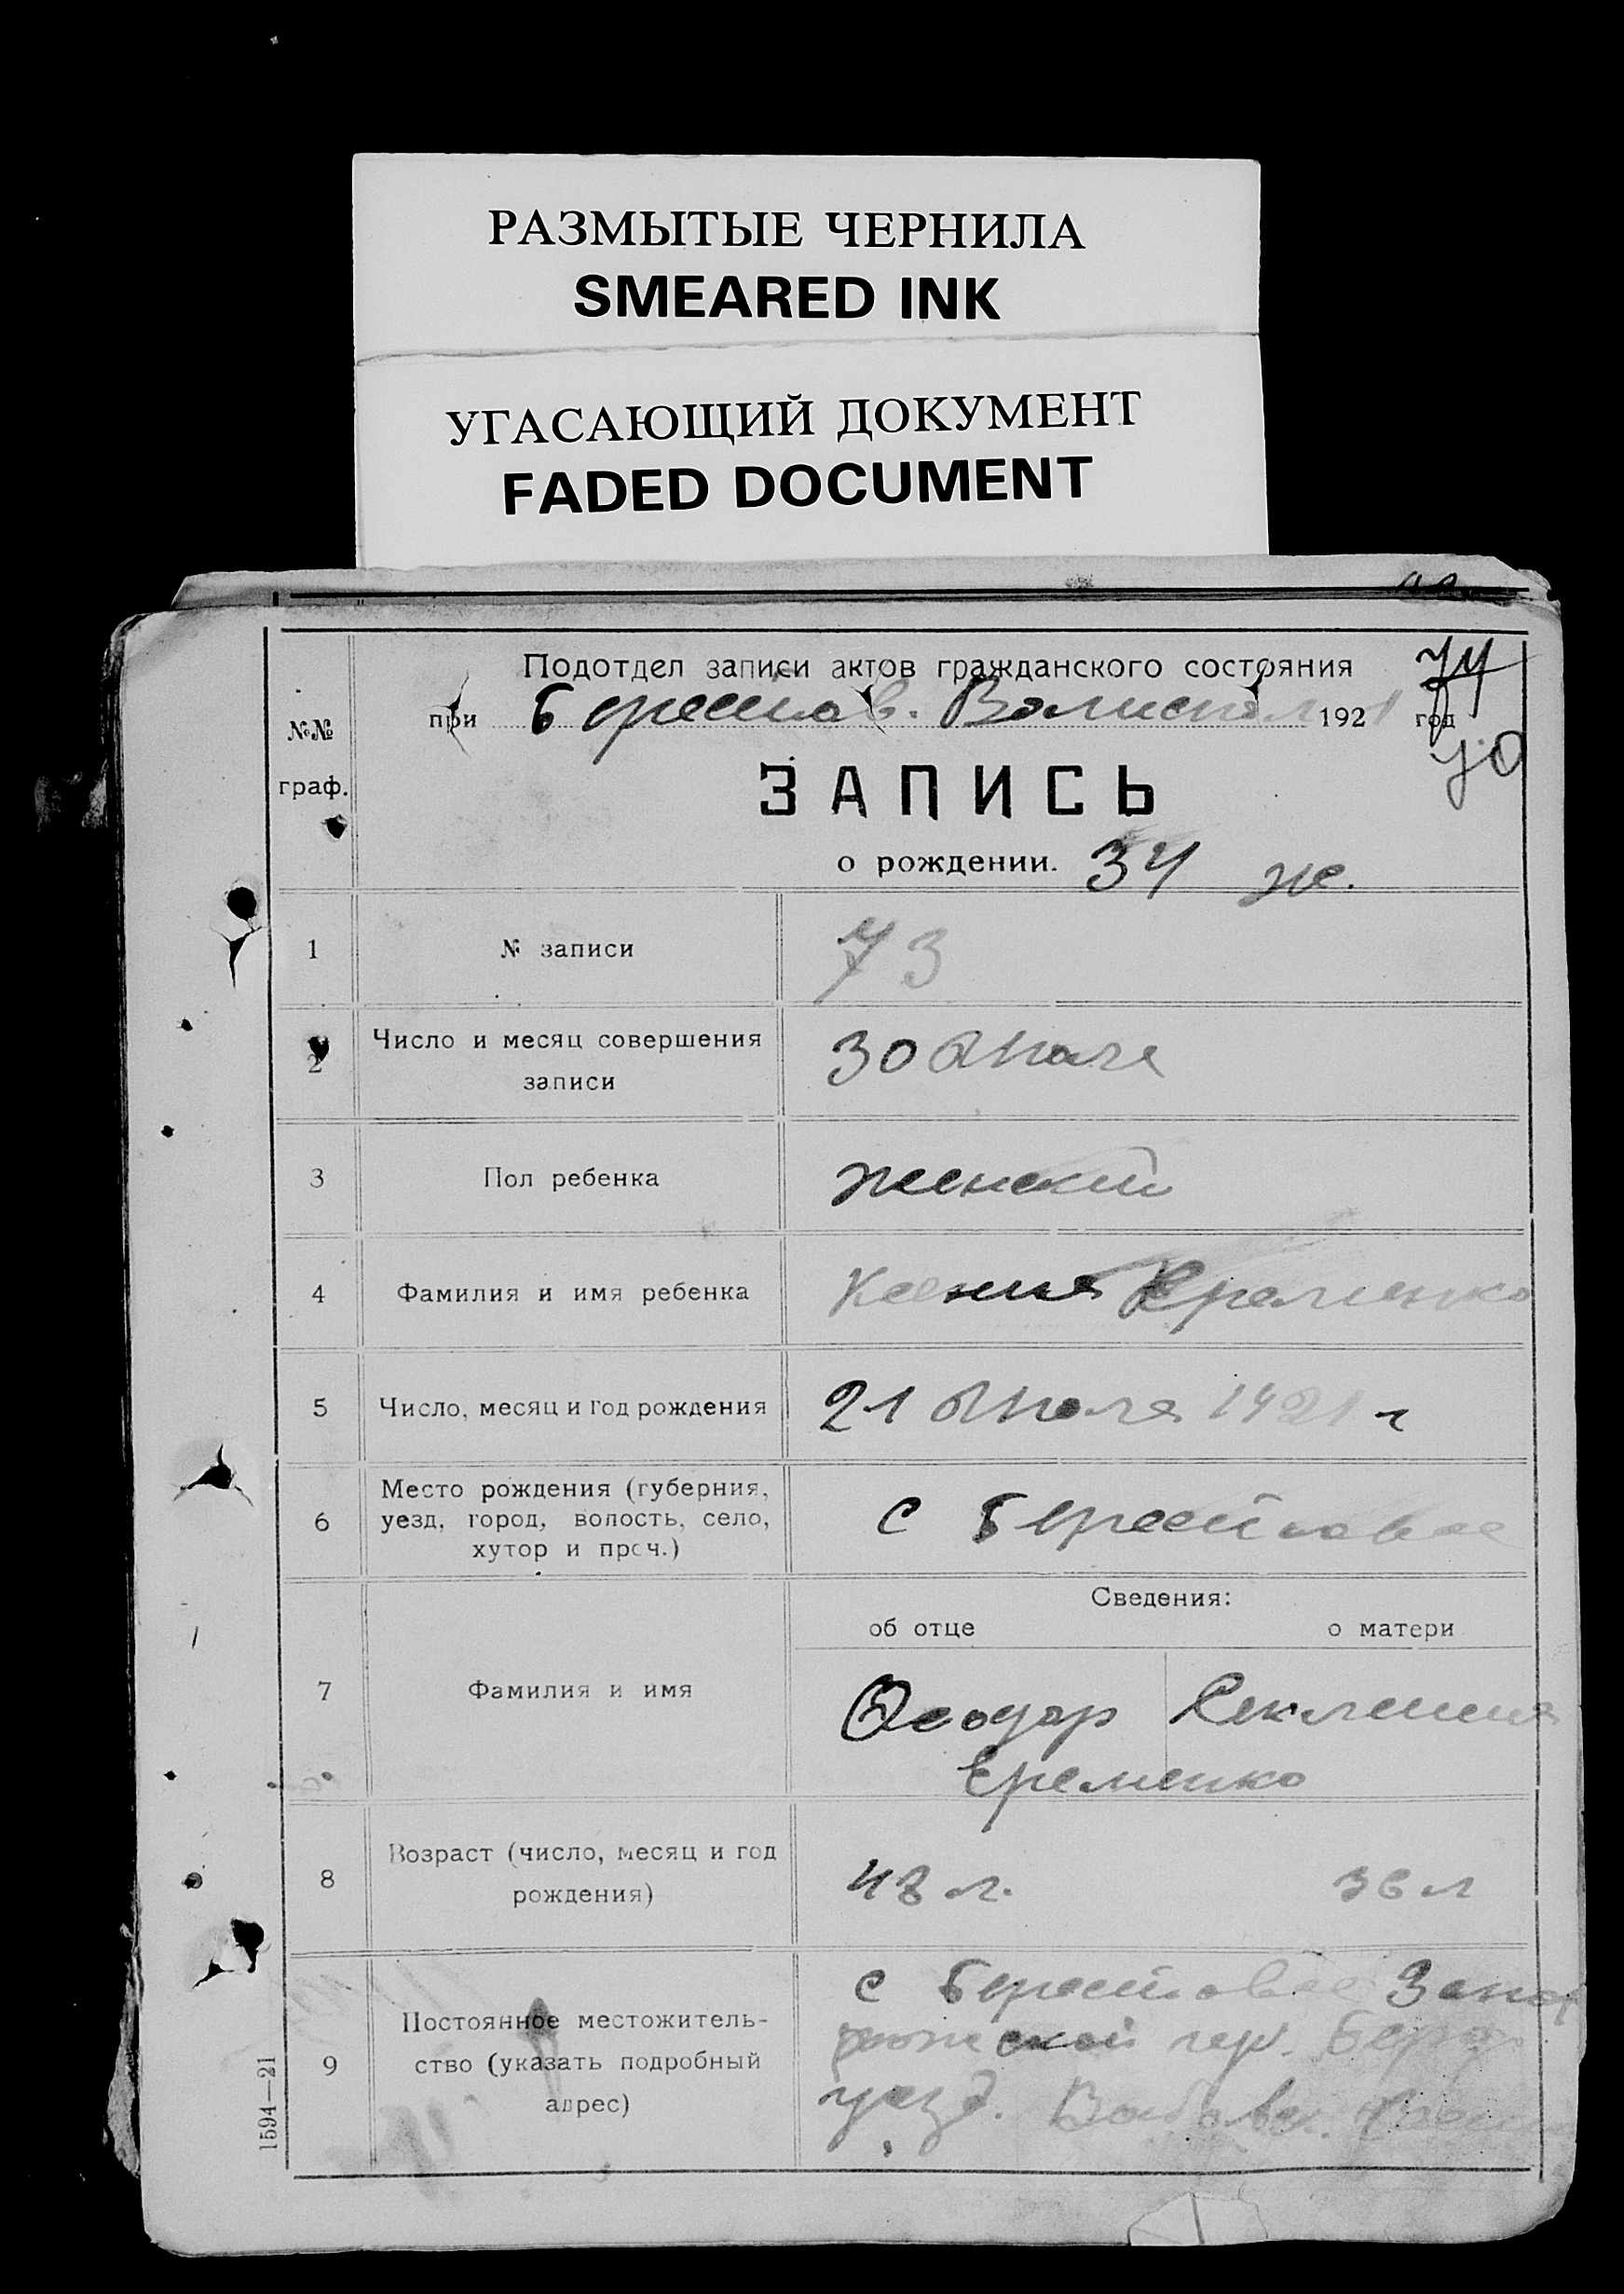 РАЗМЫТЫЕ ЧЕРНИЛА
SMEARED INK
УГАСАЮЩИЙ ДОКУМЕНТ
FADED DOCUMENT
Подотдел записи актов гражданского состояния
при Берестов. 1921 год
74
№№ граф.
ЗАПИСЬ
о рождении. 34 ж.
1 № записи 73
2 Число и месяц совершения
записи 30
3 Пол ребенка женский
4 Фамилия и имя ребенка Ксения Еременко
5 Число, месяц и год рождения 21 1921 г
6 Место рождения (губерния,
уезд, город, волость, село,
хутор и проч.) с Берестовое
Сведения:
об отце о матери
7 Фамилия и имя Феодор
Еременко
8 Возраст (число, месяц и год
рождения) 48 л. 36 л
9 Постоянное местожитель-
ство (указать подробный
адрес) с Берестовое Запор
рожской гер.
уезд.
1594—21